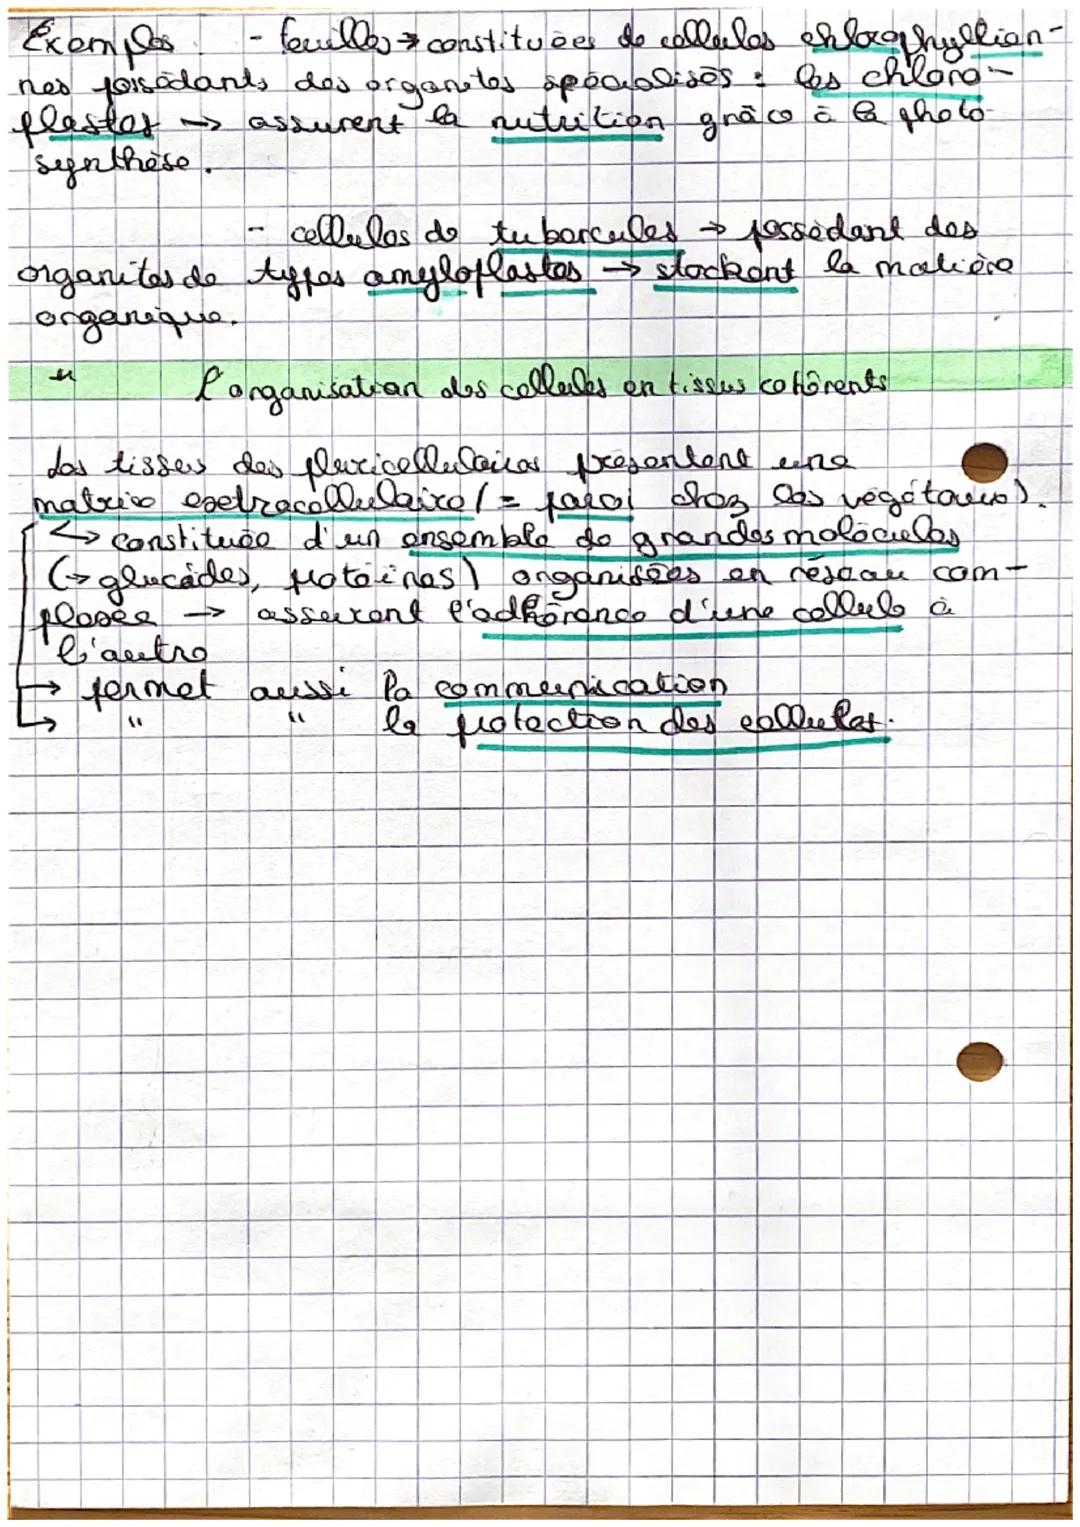 Exemples : - feuilles → constituées de cellules chlorophyllien-
nes possédants des organites spécialisés : les chloro-
plastes → assurent la nutrition grâce à la photo-
synthèse.
- cellules de tubercules → possèdent des
organites de types amyloplastes → stockent la matière
organique.
L'organisation des cellules en tissus cohérents
Les tissus des pluricellulaires présentent une
matrice extracellulaire (= paroi chez les végétaux).
↳ constituée d'un ensemble de grandes molécules
(→ glucides, protéines) organisées en réseau com-
plexe → assurent l'adhérence d'une cellule à
l'autre
→ permet aussi la communication
→ " " la protection des cellules.